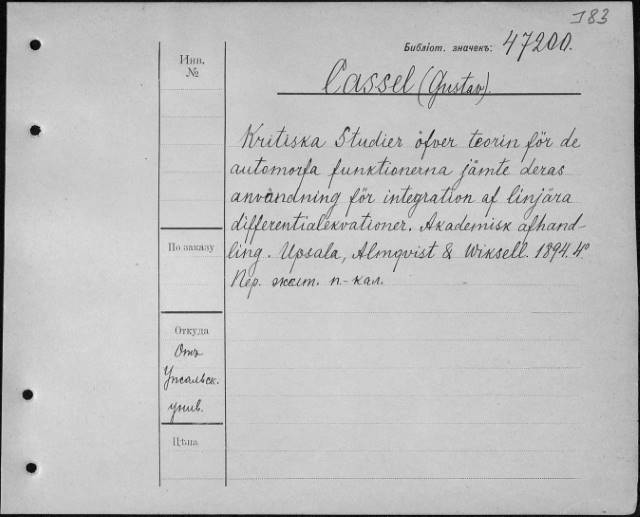 183
Библіот. значекъ: 47200.
Инв.
№
Cassel (Gustav).
Kritiska Studier öfver teorin för de
automorfa funktionerna jämte deras
användning för integration af linjära
differentialekvationer. Akademisk afhand-
ling. Upsala, Almqvist & Wiksell. 1894. 4°
По заказу
Пер. п.-кал.
Откуда
Отъ
Упсальск.
унив.
Цѣна